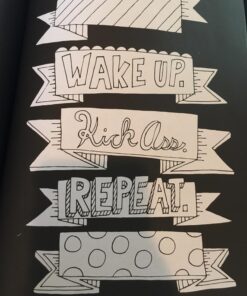 WAKE UP.
Kick Ass.
REPEAT.